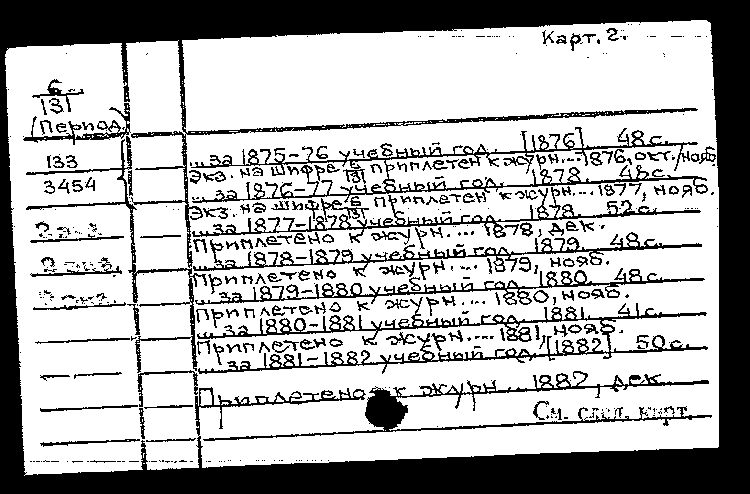 Карт. 2.
6
131
(Период.)
133
3454
... за 1875-76 учебный год. [1876]. 48 с.
Экз. на шифре 6/131 приплетен к журн... 1876, окт./нояб.
... за 1876-77 учебный год. 1878. 48 с.
Экз. на шифре 6/131 приплетен к журн... 1877, нояб.
... за 1877-1878 учебный год. 1878. 52 с.
2 экз.
Приплетено к журн.... 1878, дек.
... за 1878-1879 учебный год. 1879. 48 с.
2 экз.
Приплетено к журн.... 1879, нояб.
... за 1879-1880 учебный год. 1880. 48 с.
2 экз.
Приплетено к журн.... 1880, нояб.
... за 1880-1881 учебный год. 1881. 41 с.
Приплетено к журн.... 1881, нояб.
... за 1881-1882 учебный год. [1882]. 50 с.
Приплетено к журн... 1882, дек.
См. след. карт.